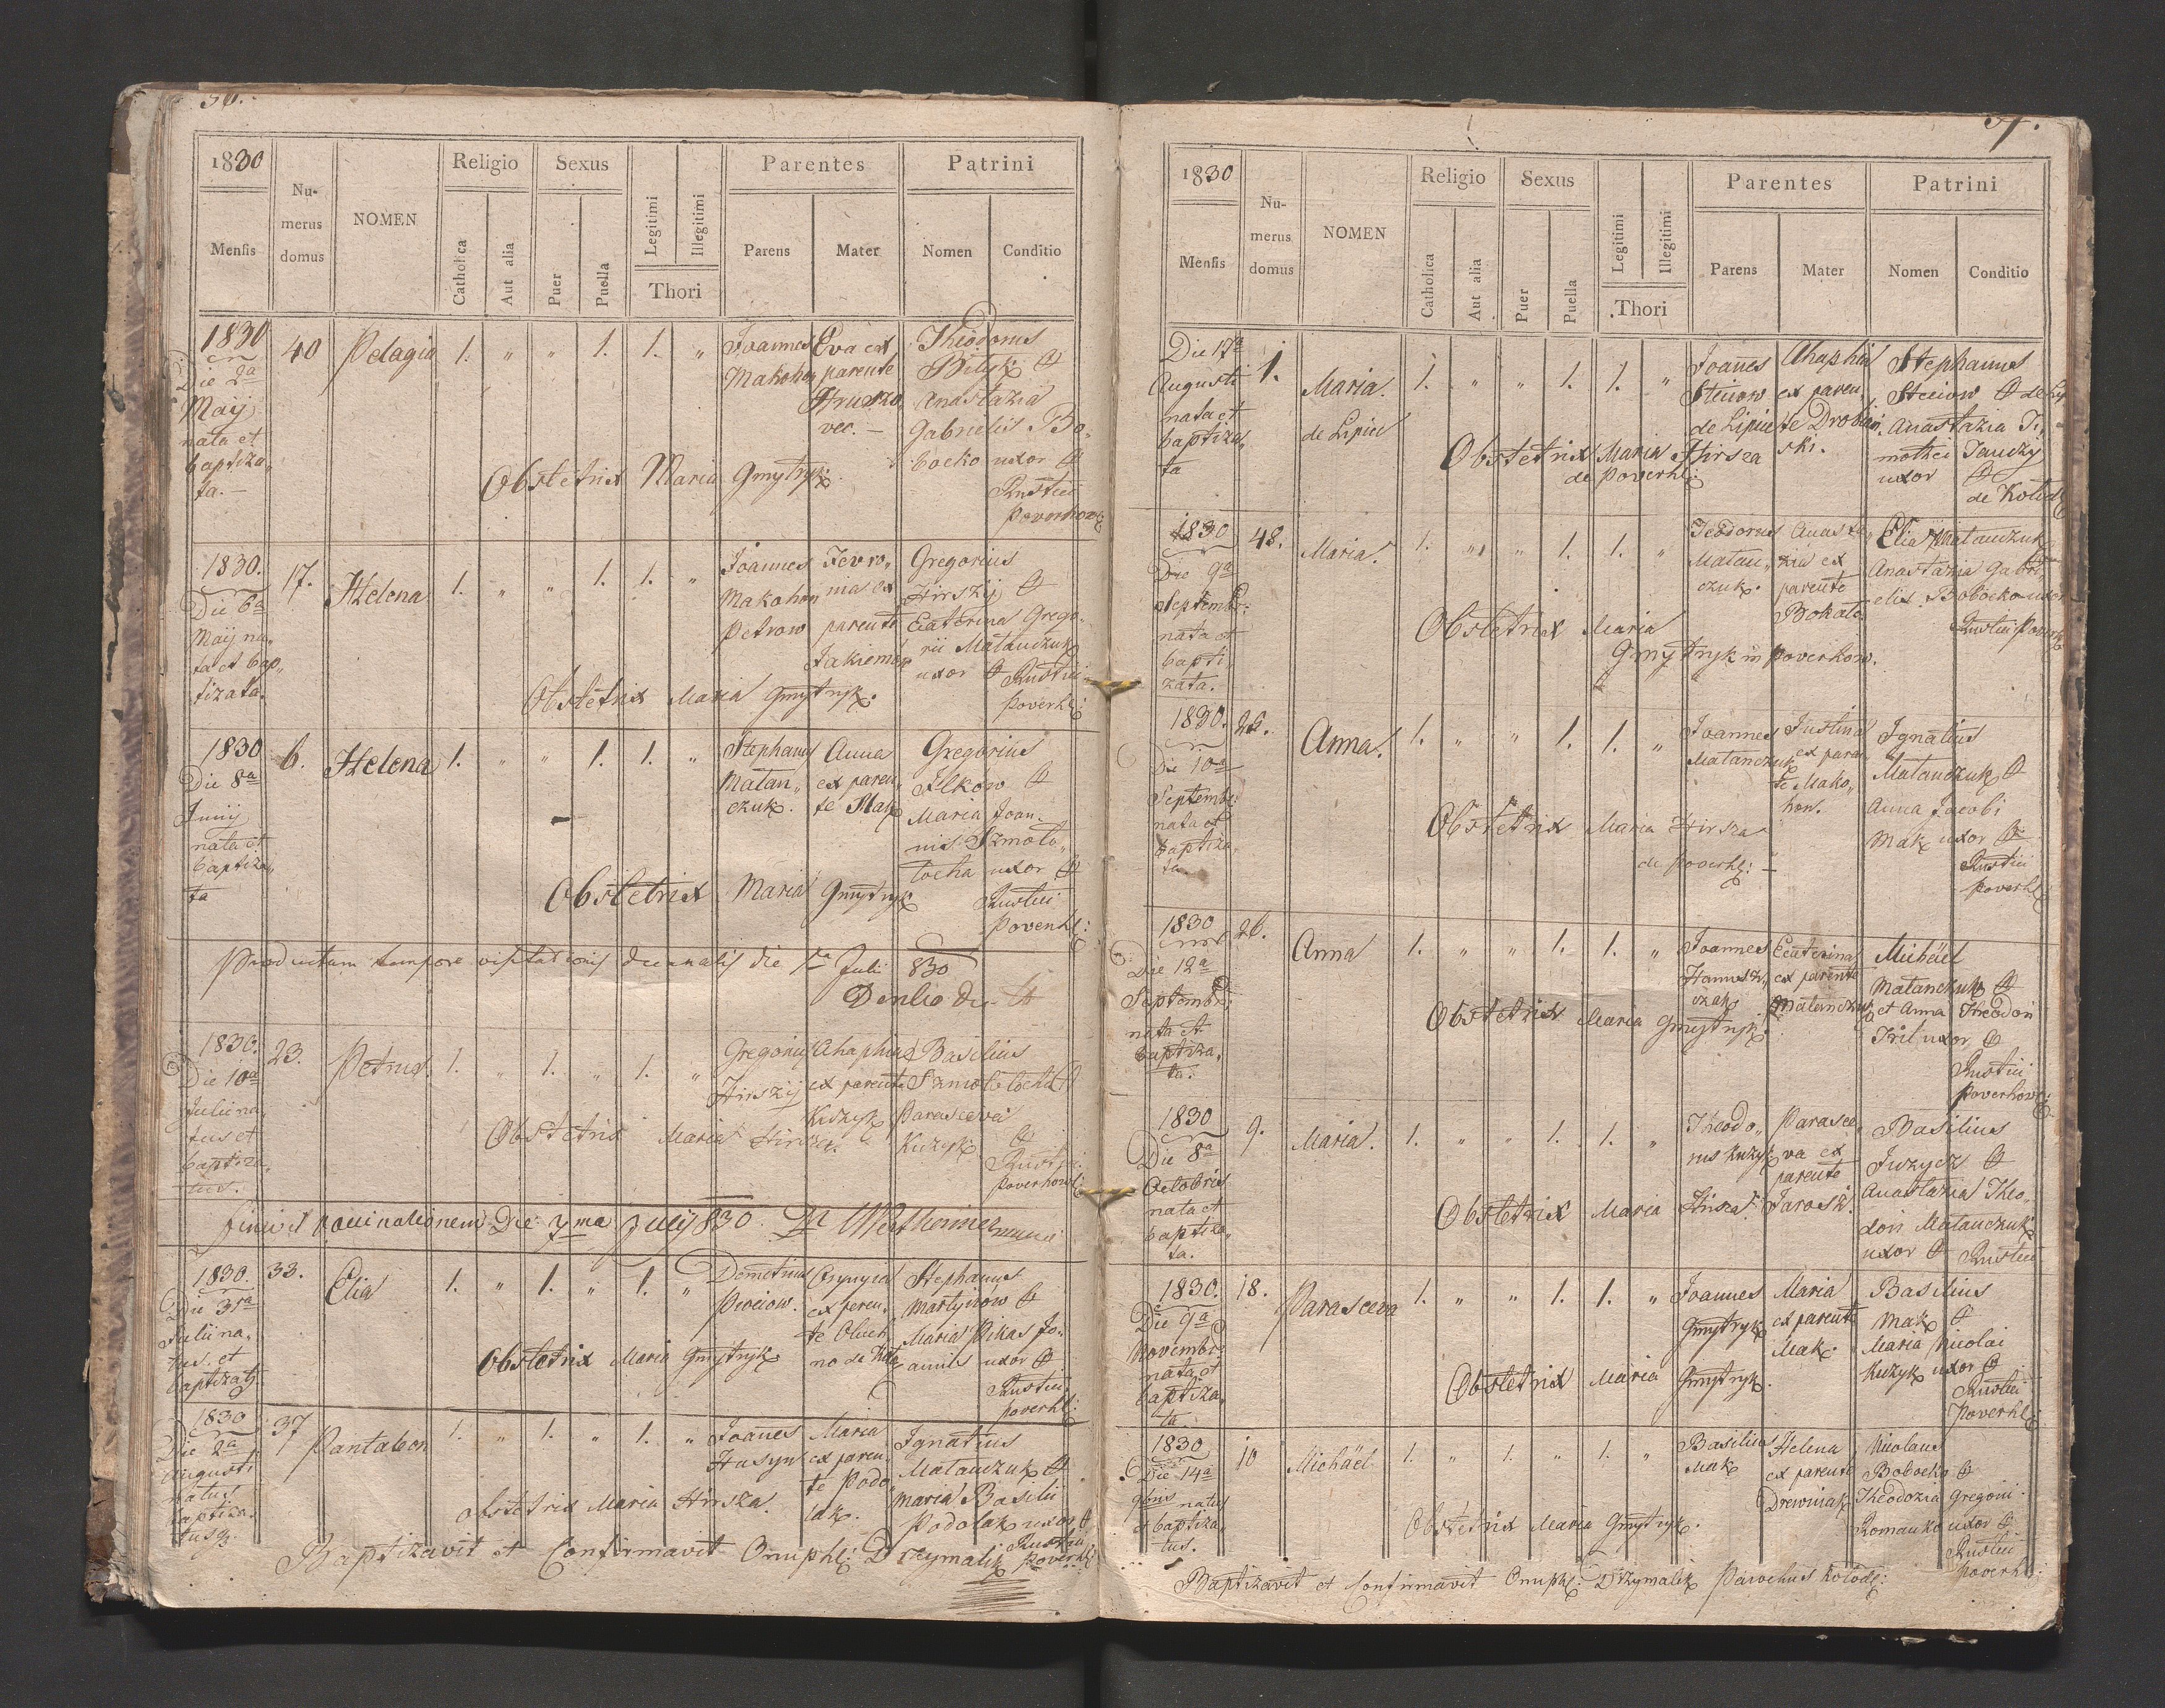 1830
Mensis
Numerus domus
NOMEN
Religio
Catholica
Aut alia
Sexus
Puer
Puella
Legitimi
Illegitimi
Thori
Parentes
Parens
Mater
Patrini
Nomen
Conditio
1830
Die 2a
Maij
nata et
baptiza„
ta.–
40
Pelagia
1. „ „ 1. 1. „
Joannes
Makohon
Eva ex
parente
Hruszo
vec.–
Theodorus
Bilyk
Anastazia
Gabrielis Bo„
bocko uxor
Rustici
Poverhow:
Obstetrix Maria Gmytryk
1830.
Die 6a
Maij na„
ta et bap„
tizata.
17.
Helena
1. „ „ 1. 1. „
Joannes
Makohon
Petrow
Jevro„
nia ex
parente
Jakiemow
Gregorius
Hirszij
Ecaterina Grego„
rii Matanczuk
uxor Rustici
Poverhl:
Obstetrix Maria Gmytryk.
1830
Die 8a
Junij
nata et
baptiza„
ta
6.
Helena
1. „ „ 1. 1. „
Stephanus
Matan„
czuk.
Anna
ex paren„
te Mak
Gregorius
Ilkow
Maria Joan„
nis Szmolo„
tocha uxor
Rustici
Poverhl:
Obstetrix Maria Gmytryk
Productum tempore visitationis decanalis die 1a Julii 830
1830.
Die 10a
Julii na„
tus et
baptiza„
tus.
23.
Petrus.
1. „ 1. „ 1. „
Gregorius
Hirszij
Ahaphia
ex parente
Kuzyk
Basilius
Szmolotocha
Parasceva
Kuzyk
Rustici
Poverhowl:
Obstetrix Maria Hirsza.
finivit vaccinationem Die 7ma Julij 830.
1830.
Die 31a
Julii na„
tus et
baptizatg.
33.
Elia
1. „ 1. „ 1. „
Demetrius
ex paren„
te Oluch
Stephanus
Martynow
Maria Pikas Jo„
annis uxor
Rustici
Poverhl:
Obstetrix Maria Gmytryk
1830
Die 2a
Augusti
natus
baptiza„
tusq.
37
Pantaleon
1. „ 1. „ 1. „
Joannes
Husyn
Maria
ex paren„
te Podo„
lak.
Ignatius
Matanczuk
Maria Basilii
Podolak uxor
Rustici
Poverhl:
Obstetrix Maria Hirsza.
Baptizavit et Confirmavit Onuphl: Drzymalik
1830
Mensis
Numerus domus
NOMEN
Religio
Catholica
Aut alia
Sexus
Puer
Puella
Legitimi
Illegitimi
Thori
Parentes
Parens
Mater
Patrini
Nomen
Conditio
Die 17a
Augusti
nata et
baptiza„
ta
1.
Maria
de Lipia
1. „ „ 1. 1. „
Joannes
Steciow
de Lipie
Ahaphia
ex paren„
te Drobin„
ski.
Stephanus
Steciow
Anastazia Ti„
mothei Jauczy
uxor
de Kolodl
Obstetrix Maria Hirsza
de Poverhl:
1830
Die 9a
Septembr:
nata et
bapti
zata.
48.
Maria.
1. „ „ 1. 1. „
Teodorus
Matan„
czuk.
Anasta„
zia ex
parente
Bokalo.
Elia Matanczuk
Anastazia Gabri„
elis Bobocko uxor
Rustici Poverhl
Obstetrix Maria
Gmytryk in Poverhow.
1830.
Die 10a
Septembr:
nata et
baptiza„
ta
26.
Anna.
1. „ „ 1. 1. „
Joannes
Matanczuk
Justina
ex paren
te Mako„
hon.
Ignatius
Matanczuk
Anna Jacobi
Mak uxor
Rustici
Poverhl
Obstetrix Maria Hirsza
de Poverhl:
1830
Die 12a
Septembr:
nata et
baptiza„
ta.
26.
Anna
1. „ „ 1. 1. „
Joannes
Ecaterina
ex parente
Matanczuk
Michäel
Matanczuk
et Anna Theodori
Iril uxor
Rustici
Poverhowl:
Obstetrix Maria Gmytryk.
1830
Die 8a
Octobris
nata et
baptiza„
ta.
9.
Maria.
1. „ „ 1. 1. „
Theodo„
rus Kuzyk
Parasce„
va ex
parente
Jarosz.
Basilius
Juzycz
Anastazia Theo„
dori Matanczuk
uxor Rustici
Obstetrix Maria Hirsza.
1830.
Die 9a
Novembr:
nata et
baptiza„
ta
18.
Parasceva
1. „ „ 1. 1. „
Joannes
Gmytryk
Maria
ex parente
Mak.
Basilius
Mak
Maria Nicolai
Kuzyk uxor
Rustici
Poverhl:
Obstetrix Maria Gmytryk.
1830
Die 14a
9bris natus
et baptiza„
tus.
10
Michäel
1. „ 1. „ 1. „
Basilius
Mak
Helena
ex parente
Drewniak
Nicolaus
Bobocko
Theodozia Gregorii
Romanko uxor
Rustici
Poverhl:
Obstetrix Maria Gmytryk.
Baptizavit et Confirmavit Onuphl: Drzymalik Parochus Kolodl: